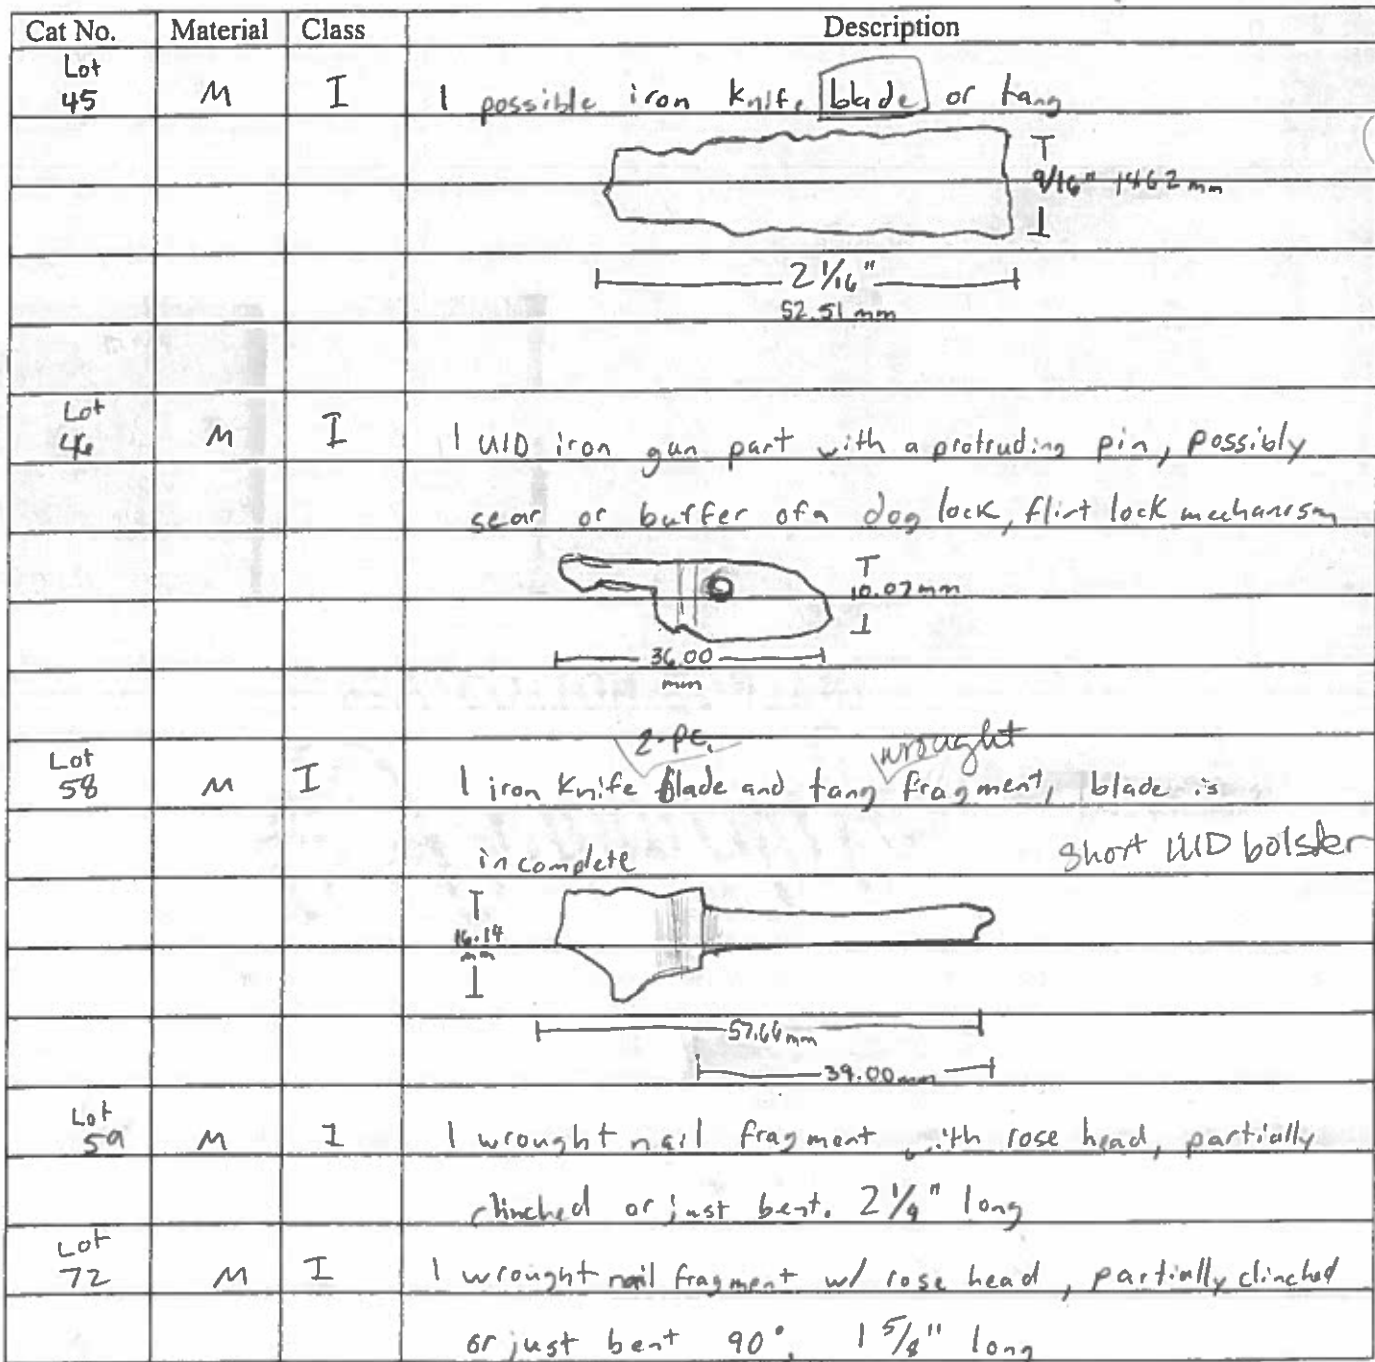 Cat No. Material Class Description
Lot
45 M I 1 possible iron knife blade or tang
9/16" 14.62 mm
2 1/16"
52.51 mm
Lot
46 M I 1 UID iron gun part with a protruding pin, possibly
sear or buffer of a dog lock, flint lock mechanism
10.07 mm
36.00
mm
2-pc. wrought
Lot
58 M I 1 iron knife blade and tang fragment, blade is
incomplete short UID bolster
16.14
mm
57.64 mm
39.00 mm
Lot
59 M I 1 wrought nail fragment with rose head, partially
clinched or just bent. 2 1/4" long
Lot
72 M I 1 wrought nail fragment w/ rose head, partially clinched
or just bent 90°. 1 5/8" long